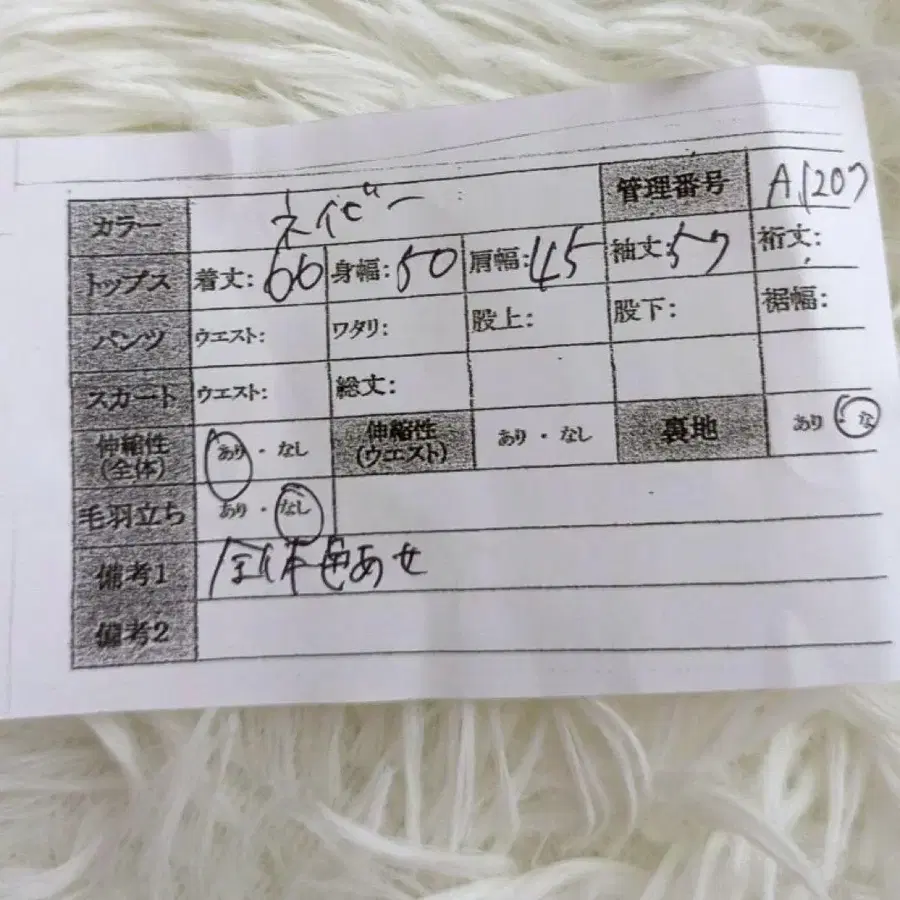 カラー ネイビー 管理番号 A1207
トップス 着丈: 66 身幅: 50 肩幅: 45 袖丈: 57 裄丈:
パンツ ウエスト: ワタリ: 股上: 股下: 裾幅:
スカート ウエスト: 総丈:
伸縮性(全体) あり・なし 伸縮性(ウエスト) あり・なし 裏地 あり・な
毛羽立ち あり・なし
備考1 全体色あせ
備考2